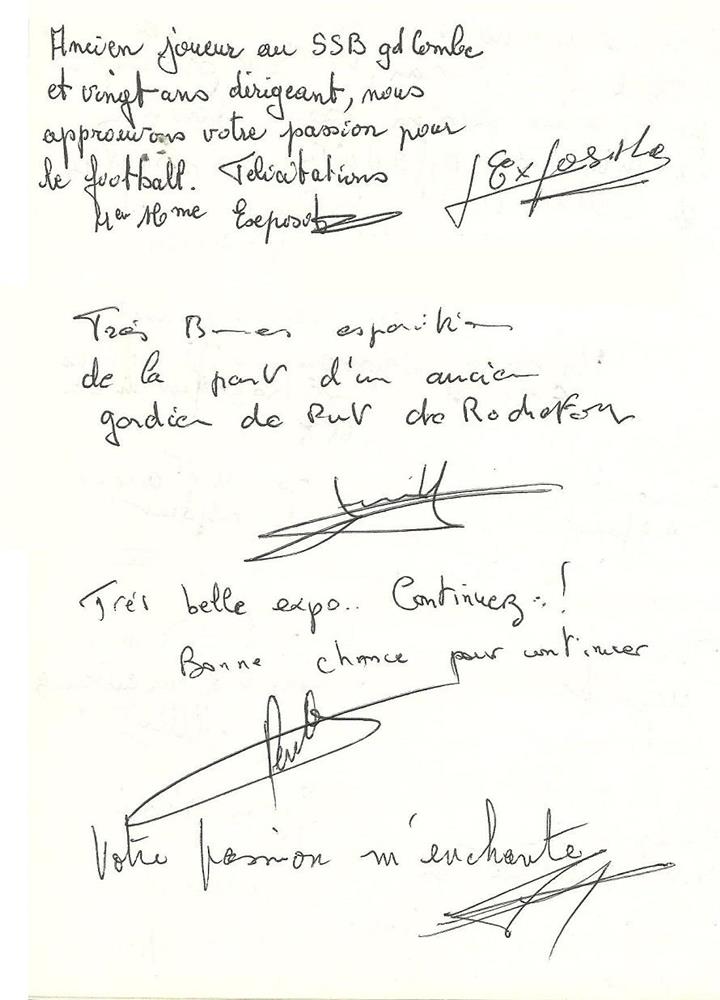 Ancien joueur au SSB gd Combe
et vingt ans dirigeant, nous
approuvons votre passion pour
le football. Félicitations
Mer Mme Exeposito
Exposito
Très Bonnes exposition
de la part d'un ancien
gardien de But de Rochefort
Très belle expo.. Continuez..!
Bonne chance pour continuer
Votre passion m'enchante